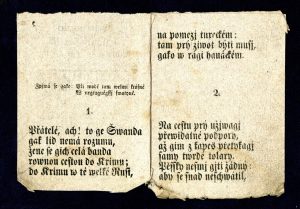 Zpíwá se gako: Při mošť tam welmi krásné
Až neytegnégssj swatyně.
1.
Přátelé, ach! to ge Šwanda
gak lid nemá rozumu,
žene se gich celá banda
rownou cestou do Krimu;
do Krimu w té welké Rusi,
na pomezj tureckém:
tam prý žiwot býti musj,
gako w rági hanáckém.
2.
Na cestu prý užjwagj
přewidatné podpory,
až gim z kapes přetýkagj
samy twrdé tolary.
Pěssky nesmj gjti žádný:
aby se snad neschwátil,